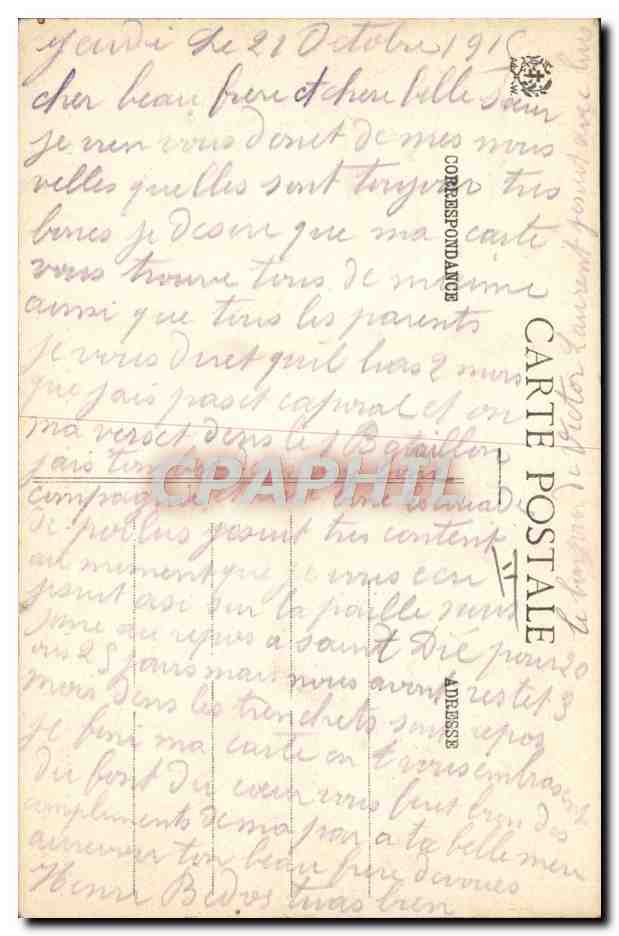 Jeudi Le 21 Octobre 1915
cher beau frere et chere belle sœur
je vien vous donet de mes nous
velles quelles sont toujour tres
bones je desire que ma carte
vous trouve tous de meme
ainsi que tous les parents
je vous diret quil lias 2 mois
que jais paset caporal et on
ma verset dens le 1 Bataillon
jais tombet
compagnie et
de poilus je suit tres content
au moment que je
suit asi sur la paille nous
somme au repos a saint Dié pour 20
ous 25 jours mais nous avont restet 3
mois dens les trenchets sens repos
je fini ma carte en vous embrasent
du font du cœur vous tout bien des
compliments de ma par a ta belle mere
aurevoir ton beau frere devoués
Henri Bedos bien
le de Victor Laurent je suit avec lui
CORRESPONDANCE
CARTE POSTALE
ADRESSE
CPAPHIL